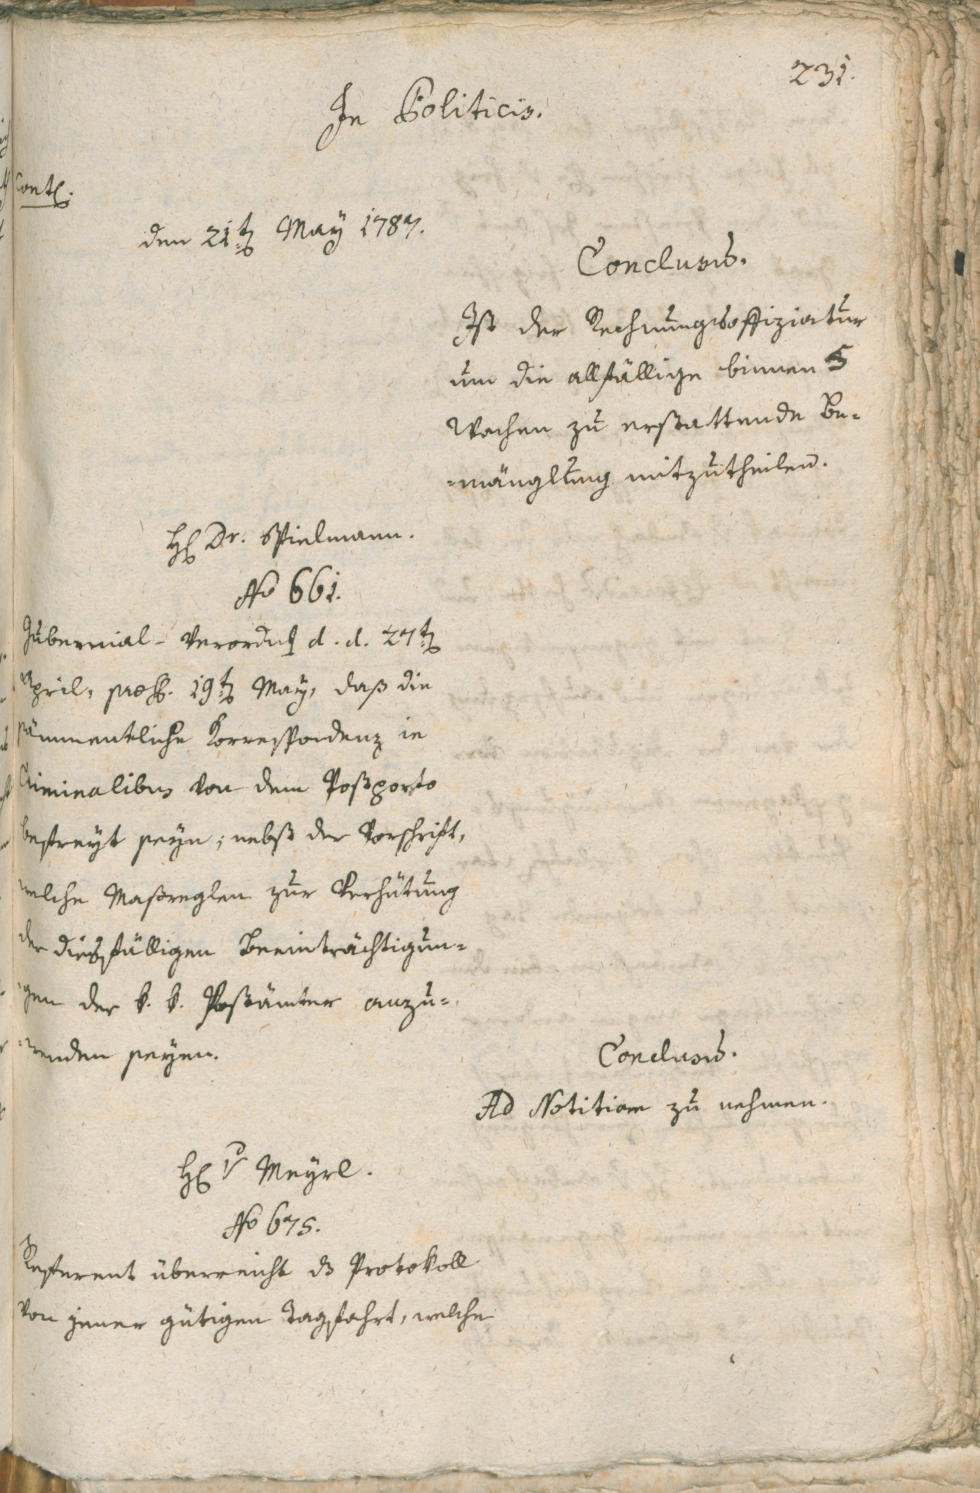 231.
In Politicis.
Cont.
den 21t May 1787.
Conclusis.
Ist der Rechnungsoffiziatur
um die allfällige binnen 5
Wochen zu erstattende Be-
-mänglung mitzutheilen.
H Dr. Spielmann.
No 661.
Gubernial-Verordng d. d. 27t
April, praes. 19t May, daß die
sämmentliche Korrespondenz in
Criminalibus von dem Postporto
befreyt seyn; nebst der Vorschrift,
welche Maßreglen zur Verhütung
der diesfälligen Beeinträchtigun-
gen der k. k. Postämter anzu-
-wenden seyen.
Conclusis.
Ad Notitiam zu nehmen.
H v Meyrl.
No 675.
Referent überreicht ds Protokoll
von jener gütigen Tagsfahrt, welche